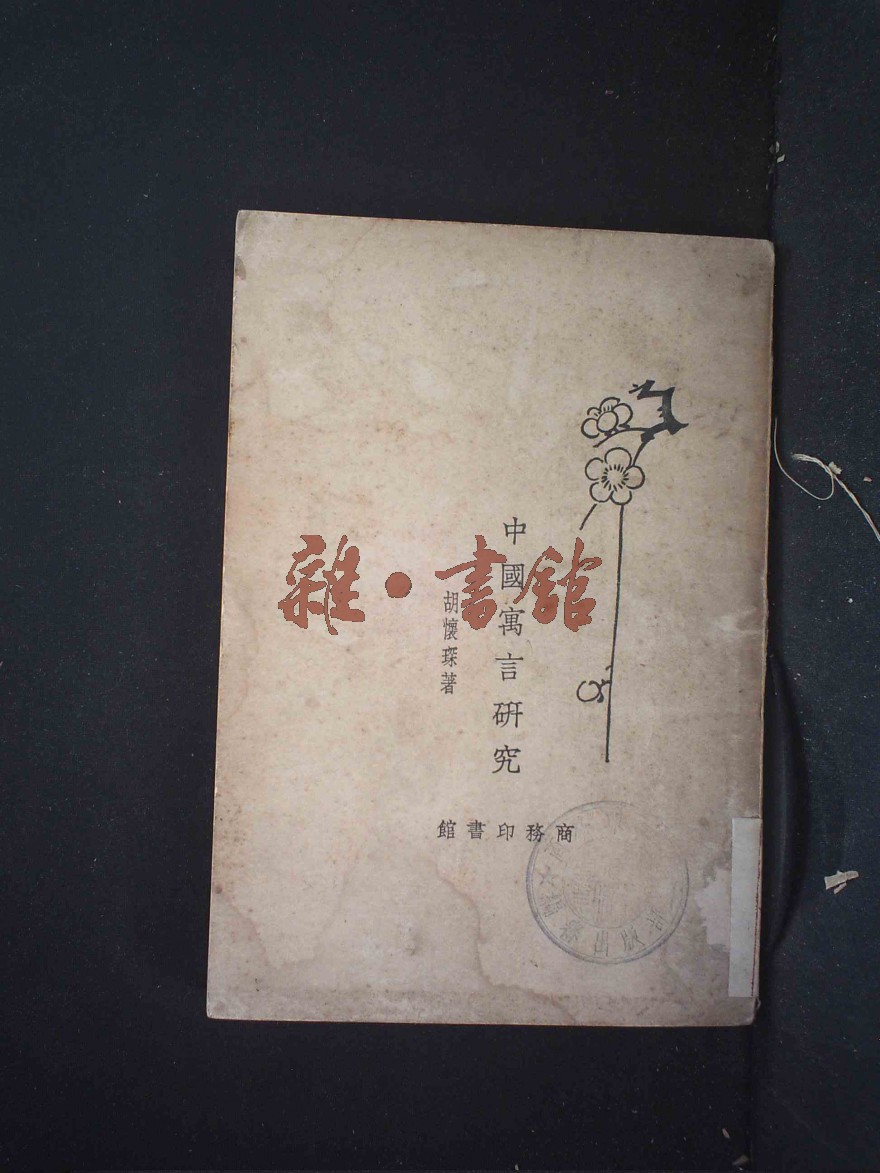 中國寓言研究
胡懷琛著
商務印書館
雜·書館